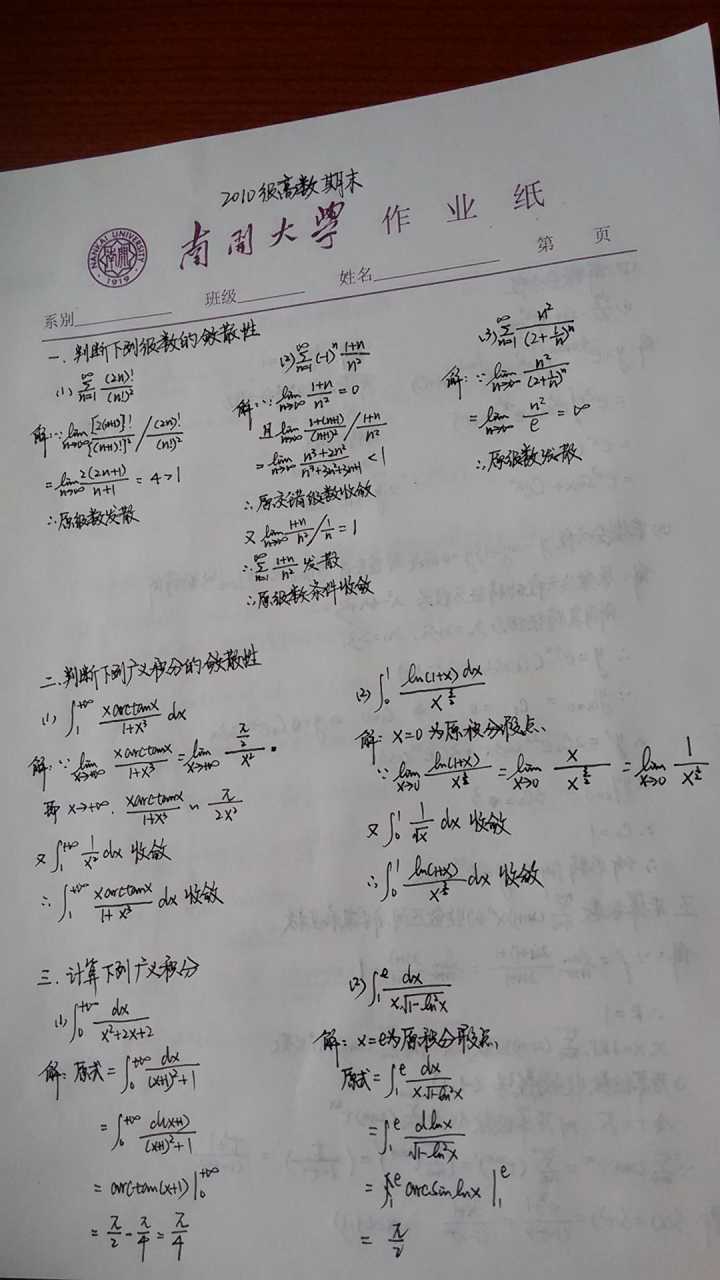 2010级高数期末
NANKAI UNIVERSITY 1919
南開大學 作业纸
系别 班级 姓名 第 页
一、判断下列级数的敛散性
(1) ∑_{n=1}^{∞} (2n)!/(n!)²
解:∵ lim_{n→∞} [2(n+1)]!/[(n+1)!]² / (2n)!/(n!)²
= lim_{n→∞} 2(2n+1)/(n+1) = 4>1
∴原级数发散
(2) ∑_{n=1}^{∞} (-1)ⁿ (1+n)/n²
解:∵ lim_{n→∞} (1+n)/n² = 0
且 lim_{n→∞} (1+(n+1))/(n+1)² / (1+n)/n²
= lim_{n→∞} (n³+2n²)/(n³+3n²+3n+1) < 1
∴原交错级数收敛
又 lim_{n→∞} (1+n)/n² / 1/n = 1
∴ ∑_{n=1}^{∞} (1+n)/n² 发散
∴原级数条件收敛
(3) ∑_{n=1}^{∞} n²/(2+1/n)ⁿ
解:∵ lim_{n→∞} n²/(2+1/n)ⁿ
= lim_{n→∞} n²/e = ∞
∴原级数发散
二、判断下列广义积分的敛散性
(1) ∫_1^{+∞} xarctanx/(1+x³) dx
解:∵ lim_{x→+∞} xarctanx/(1+x³) = lim_{x→+∞} (π/2)/x².
即 x→+∞. xarctanx/(1+x³) ~ π/2x²
又 ∫_1^{+∞} 1/x² dx 收敛
∴ ∫_1^{+∞} xarctanx/(1+x³) dx 收敛
(2) ∫_0^1 ln(1+x)dx/x^{3/2}
解: x=0 为原积分瑕点、
∵ lim_{x→0} ln(1+x)/x^{3/2} = lim_{x→0} x/x^{3/2} = lim_{x→0} 1/x^{1/2}
又 ∫_0^1 1/√x dx 收敛
∴ ∫_0^1 ln(1+x)/x^{3/2} dx 收敛
三、计算下列广义积分
(1) ∫_0^{+∞} dx/(x²+2x+2)
解:原式 = ∫_0^{+∞} dx/((x+1)²+1)
= ∫_0^{+∞} d(x+1)/((x+1)²+1)
= arctan(x+1)|_0^{+∞}
= π/2 - π/4 = π/4
(2) ∫_1^e dx/(x√(1-ln²x))
解: x=e为原积分瑕点、
原式 = ∫_1^e dx/(x√(1-ln²x))
= ∫_1^e dlnx/√(1-ln²x)
= arcsinlnx|_1^e
= π/2